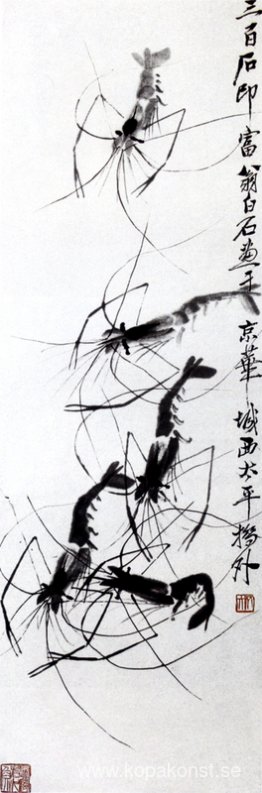 三百石印富翁白石画于京華城西太平橋外
www.kopakonst.se